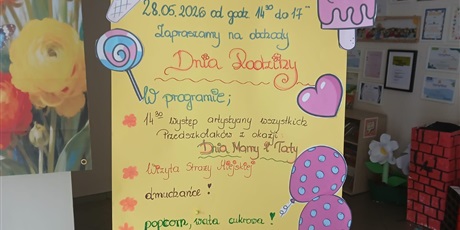 28.05.2026 od godz 14³⁰ do 17⁰⁰
Zapraszamy na obchody
Dnia Rodziny
W programie;
14³⁰ występ artystyany wszystkich
Przedszkolaków z okazji
Dnia Mamy i Taty
Wizyta Straży Miejskiej
dmuchańce!
popcorn, wata cukrowa!